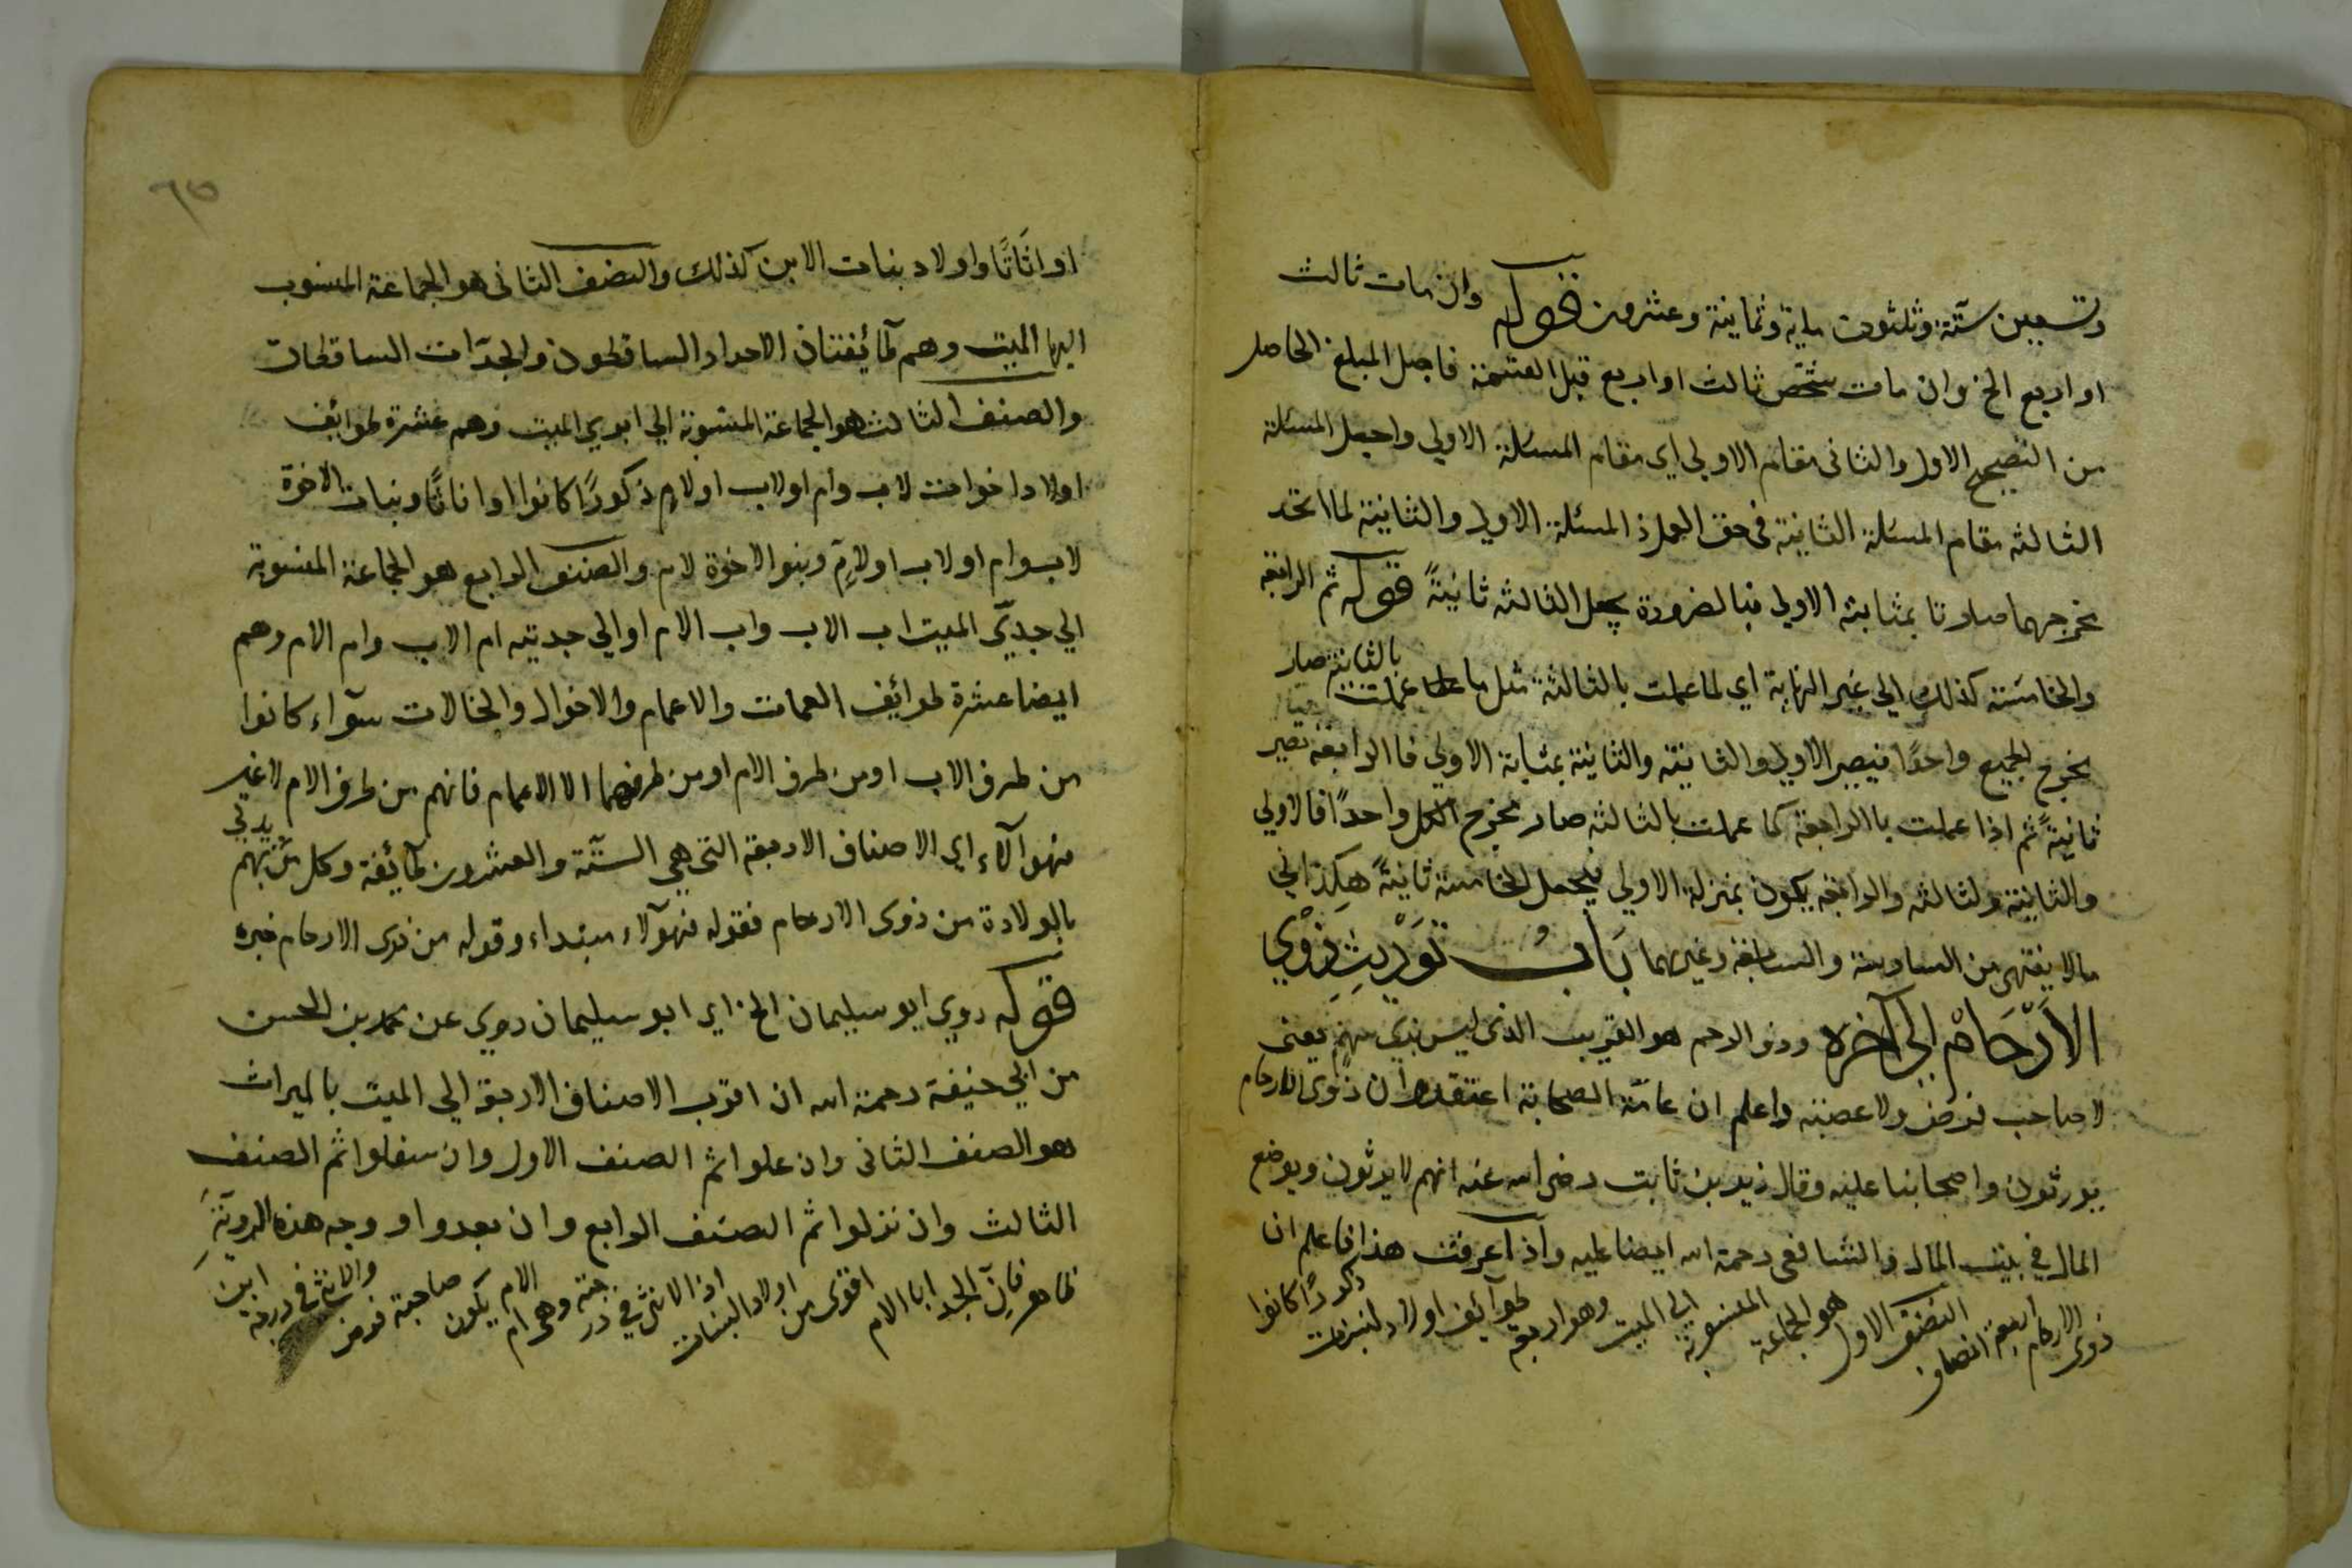 وتسعين ستة وثلثون ماية وثمانية وعشرون قوله وان مات ثالث
او اربع الخ وان مات شخص ثالث او اربع قبل القسمة فاجعل المبلغ الحاصل
من التصحيح الاول والثانى مقام الاولي اي مقام المسئلة الاولي واجعل المسئلة
الثالثه مقام المسئلة الثانية فى حق العمل اذ المسئلة الاولي والثانية لما اتحد
مخرجهما صارتا بمثابة الاولي فبالضرورة يجعل الثالثه ثانيةً قوله ثم الرابعة
والخامسة كذلك الي غير النهاية اي لما عملت بالثالثة مثل ما عملت بالثانية صار
مخرج الجميع واحدًا فيصير الاولي والثانية والثانية بمثابة الاولي فاالرابعة تصير
ثانيةً ثم اذا عملت باالرابعة كما عملت بالثالثه صار مخرج الكل واحدًا فالاولي
والثانية ولثالثه والرابعه يكون بمنزلة الاولي فيجعل الخامسة ثانيةً هكذا الي
مالا يتنهى من السادسة والسابعة وغيرهما بَابُ تَوْرِيثِ ذَوْي
الاَرْحَامْ الي آخره وذو الرحم هو القريب الذى ليس بذي سهم يعنى
لا صاحب فرض ولا عصبة واعلم ان عامّة الصحابة اعتقدوا ان ذوى الارحام
يورثون واصحابنا عليه وقال زيد بن ثابت رضى الله عنه انهم لا يرثون ويوضع
المال في بيت المال والشافعى رحمة الله ايضا عليه واذا عرفت هذا فاعلم ان
ذوى الارحام اربعة اصناف الصنف الاول هو الجماعة المنسوبة الي الميت وهو اربعة طوآئف اولاد البنات ذكورًا كانوا
او اناثًا واولاد بنات الابن كذلك والصنف الثانى هو الجماعة المنسوب
اليها الميت وهم طائفتان الاجداد الساقطون والجدّات الساقطات
والصنف الثالث هو الجماعة المنسوبة الي ابوي الميت وهم عشرة طوائف
اولاد اخوات لاب وام او لاب او لام ذكورًا كانوا او اناثًا وبنات الاخوة
لاب وام او لاب او لامّ وبنوا الاخوة لام والصنف الرابع هو الجماعة المنسوبة
الي جدّي الميت اب الاب واب الام او الي جدتيه ام الاب وام الام وهم
ايضا عشرة طوائف العمات والاعمام والاخوال والخالات سوآء كانوا
من طرف الاب او من طرف الام او من طرفهما الا الاعمام فانهم من طرف الام لا غير
فهوآلآء اي الاصناف الاربعة التى هي الستّة والعشرون طآئفة وكل من يدلي بهم
بالولادة من ذوى الارحام فقوله فهوآلاء مبتداء وقوله من ذوى الارحام خبره
قوله روي ابو سليمان الخ اي ابو سليمان روي عن محمد بن الحسن
من ابي حنيفة رحمة الله ان اقرب الاصناف الاربعة الي الميت بالميراث
هو الصنف الثانى وان علوا ثم الصنف الاول وان سفلوا ثم الصنف
الثالث وان نزلوا ثم الصنف الرابع وان بعدوا ووجه هذه الروية
ظاهر فانّ الجد ابا الام اقوى من اولاد البنات اذ الانثى في درجته وهى ام الام يكون صاحبة فرض والانثى في درجة ابن